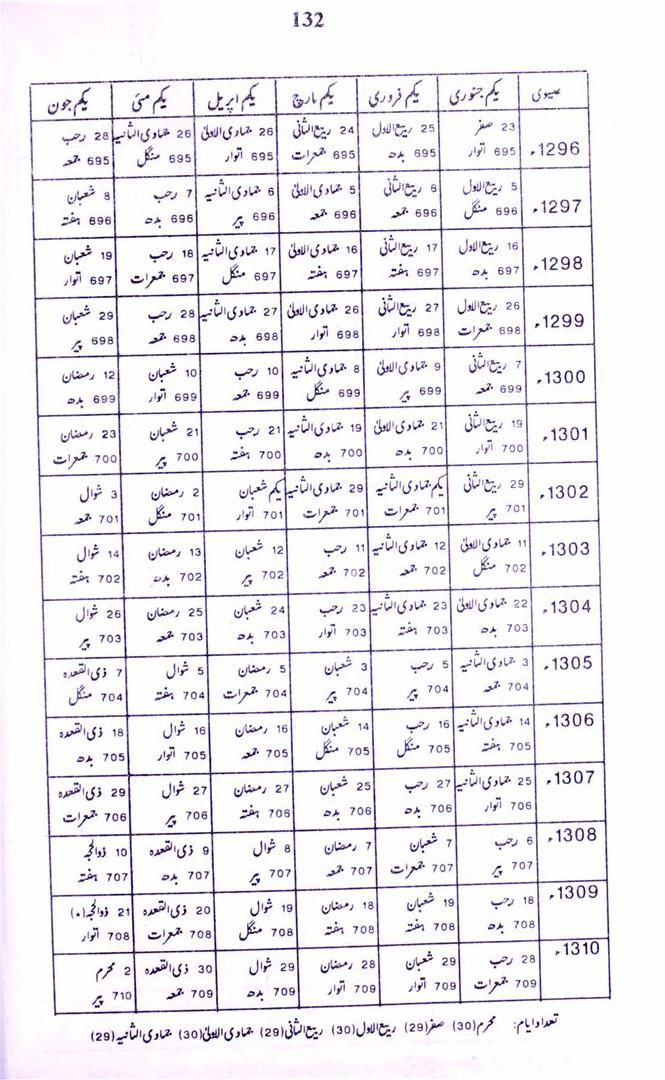 132
عیسوی یکم جنوری یکم فروری یکم مارچ یکم اپریل یکم مئی یکم جون
1296ء 23 صفر 25 ربیع الاول 24 ربیع الثانی 26 جمادی الاولیٰ 26 جمادی الثانیہ 28 رجب
695 اتوار 695 بدھ 695 جمعرات 695 اتوار 695 منگل 695 جمعہ
1297ء 5 ربیع الاول 6 ربیع الثانی 5 جمادی الاولیٰ 6 جمادی الثانیہ 7 رجب 8 شعبان
696 منگل 696 جمعہ 696 جمعہ 696 پیر 696 بدھ 696 ہفتہ
1298ء 16 ربیع الاول 17 ربیع الثانی 16 جمادی الاولیٰ 17 جمادی الثانیہ 18 رجب 19 شعبان
697 بدھ 697 ہفتہ 697 ہفتہ 697 منگل 697 جمعرات 697 اتوار
1299ء 26 ربیع الاول 27 ربیع الثانی 26 جمادی الاولیٰ 27 جمادی الثانیہ 28 رجب 29 شعبان
698 جمعرات 698 اتوار 698 اتوار 698 بدھ 698 جمعہ 698 پیر
1300ء 7 ربیع الثانی 9 جمادی الاولیٰ 8 جمادی الثانیہ 10 رجب 10 شعبان 12 رمضان
699 جمعہ 699 پیر 699 منگل 699 جمعہ 699 اتوار 699 بدھ
1301ء 19 ربیع الثانی 21 جمادی الاولیٰ 19 جمادی الثانیہ 21 رجب 21 شعبان 23 رمضان
700 اتوار 700 بدھ 700 بدھ 700 ہفتہ 700 پیر 700 جمعرات
1302ء 29 ربیع الثانی یکم جمادی الثانیہ 29 جمادی الثانیہ یکم شعبان 2 رمضان 3 شوال
701 پیر 701 جمعرات 701 جمعرات 701 اتوار 701 منگل 701 جمعہ
1303ء 11 جمادی الاولیٰ 12 جمادی الثانیہ 11 رجب 12 شعبان 13 رمضان 14 شوال
702 منگل 702 جمعہ 702 جمعہ 702 پیر 702 بدھ 702 ہفتہ
1304ء 22 جمادی الاولیٰ 23 جمادی الثانیہ 23 رجب 24 شعبان 25 رمضان 26 شوال
703 بدھ 703 ہفتہ 703 اتوار 703 بدھ 703 جمعہ 703 پیر
1305ء 3 جمادی الثانیہ 5 رجب 3 شعبان 5 رمضان 5 شوال 7 ذی القعدہ
704 جمعہ 704 پیر 704 پیر 704 جمعرات 704 ہفتہ 704 منگل
1306ء 14 جمادی الثانیہ 16 رجب 14 شعبان 16 رمضان 16 شوال 18 ذی القعدہ
705 ہفتہ 705 منگل 705 منگل 705 جمعہ 705 اتوار 705 بدھ
1307ء 25 جمادی الثانیہ 27 رجب 25 شعبان 27 رمضان 27 شوال 29 ذی القعدہ
706 اتوار 706 بدھ 706 بدھ 706 ہفتہ 706 پیر 706 جمعرات
1308ء 6 رجب 7 شعبان 7 رمضان 8 شوال 9 ذی القعدہ 10 ذوالحجہ
707 پیر 707 جمعرات 707 جمعہ 707 پیر 707 بدھ 707 ہفتہ
1309ء 18 رجب 19 شعبان 18 رمضان 19 شوال 20 ذی القعدہ 21 ذوالحجہ (•)
708 بدھ 708 ہفتہ 708 ہفتہ 708 منگل 708 جمعرات 708 اتوار
1310ء 28 رجب 29 شعبان 28 رمضان 29 شوال 30 ذی القعدہ 2 محرم
709 جمعرات 709 اتوار 709 اتوار 709 بدھ 709 جمعہ 710 پیر
تعداد ایام: محرم (30) صفر (29) ربیع الاول (30) ربیع الثانی (29) جمادی الاولیٰ (30) جمادی الثانیہ (29)